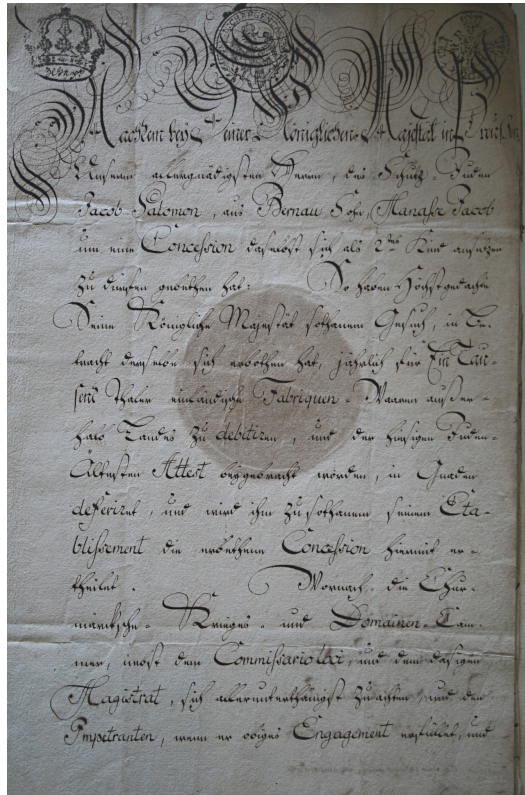 Nachdem bey Seiner Königlichen Majestät in Preußen
Unserm allergnädigsten Herrn, des Schutz-Juden
Jacob Salomon, aus Bernau Sohn, Manasse Jacob
um eine Concession daselbst sich als 2tes Kind ansetzen
zu dürfen gebethen hat: So haben Höchstgedachte
Seine Königliche Majestät sothanem Gesuch, in Be-
tracht derselbe sich erbothen hat, jährlich für Ein Tau-
send Thaler einländische Fabriquen-Waaren außer-
halb Landes zu debitiren, und der hiesigen Juden-
Ältesten Attest beygebracht worden, in Gnaden
deferiret, und wird ihm zu sothanem seinem Eta-
blissement die erbethene Concession hiermit er-
theilet. Wornach die Chur-
märcksche-Krieges- und Domainen-Cam-
mer, nebst dem Commissario loci, und dem dasigen
Magistrat, sich allerunterthänigst zu achten, und den
Impetranten, wenn er obiges Engagement erfüllet, und